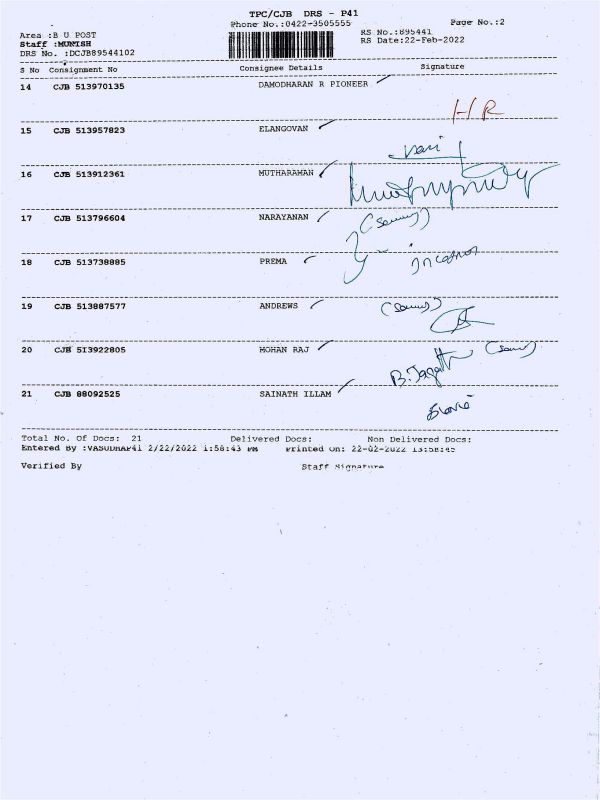 TPC/CJB DRS - P41
Phone No.:0422-3505555 Page No.:2
Area :B U POST RS No.:895441
Staff :MUNISH RS Date:22-Feb-2022
DRS No. :DCJB89544102
S No Consignment No Consignee Details Signature
14 CJB 513970135 DAMODHARAN R PIONEER
HR
15 CJB 513957823 ELANGOVAN
16 CJB 513912361 MUTHARAMAN
17 CJB 513796604 NARAYANAN
18 CJB 513738885 PREMA
19 CJB 513887577 ANDREWS
20 CJB 513922805 MOHAN RAJ
21 CJB 88092525 SAINATH ILLAM
Total No. Of Docs: 21 Delivered Docs: Non Delivered Docs:
Entered By :VASUDHAP41 2/22/2022 1:58:43 PM Printed On: 22-02-2022 13:58:45
Verified By Staff Signature